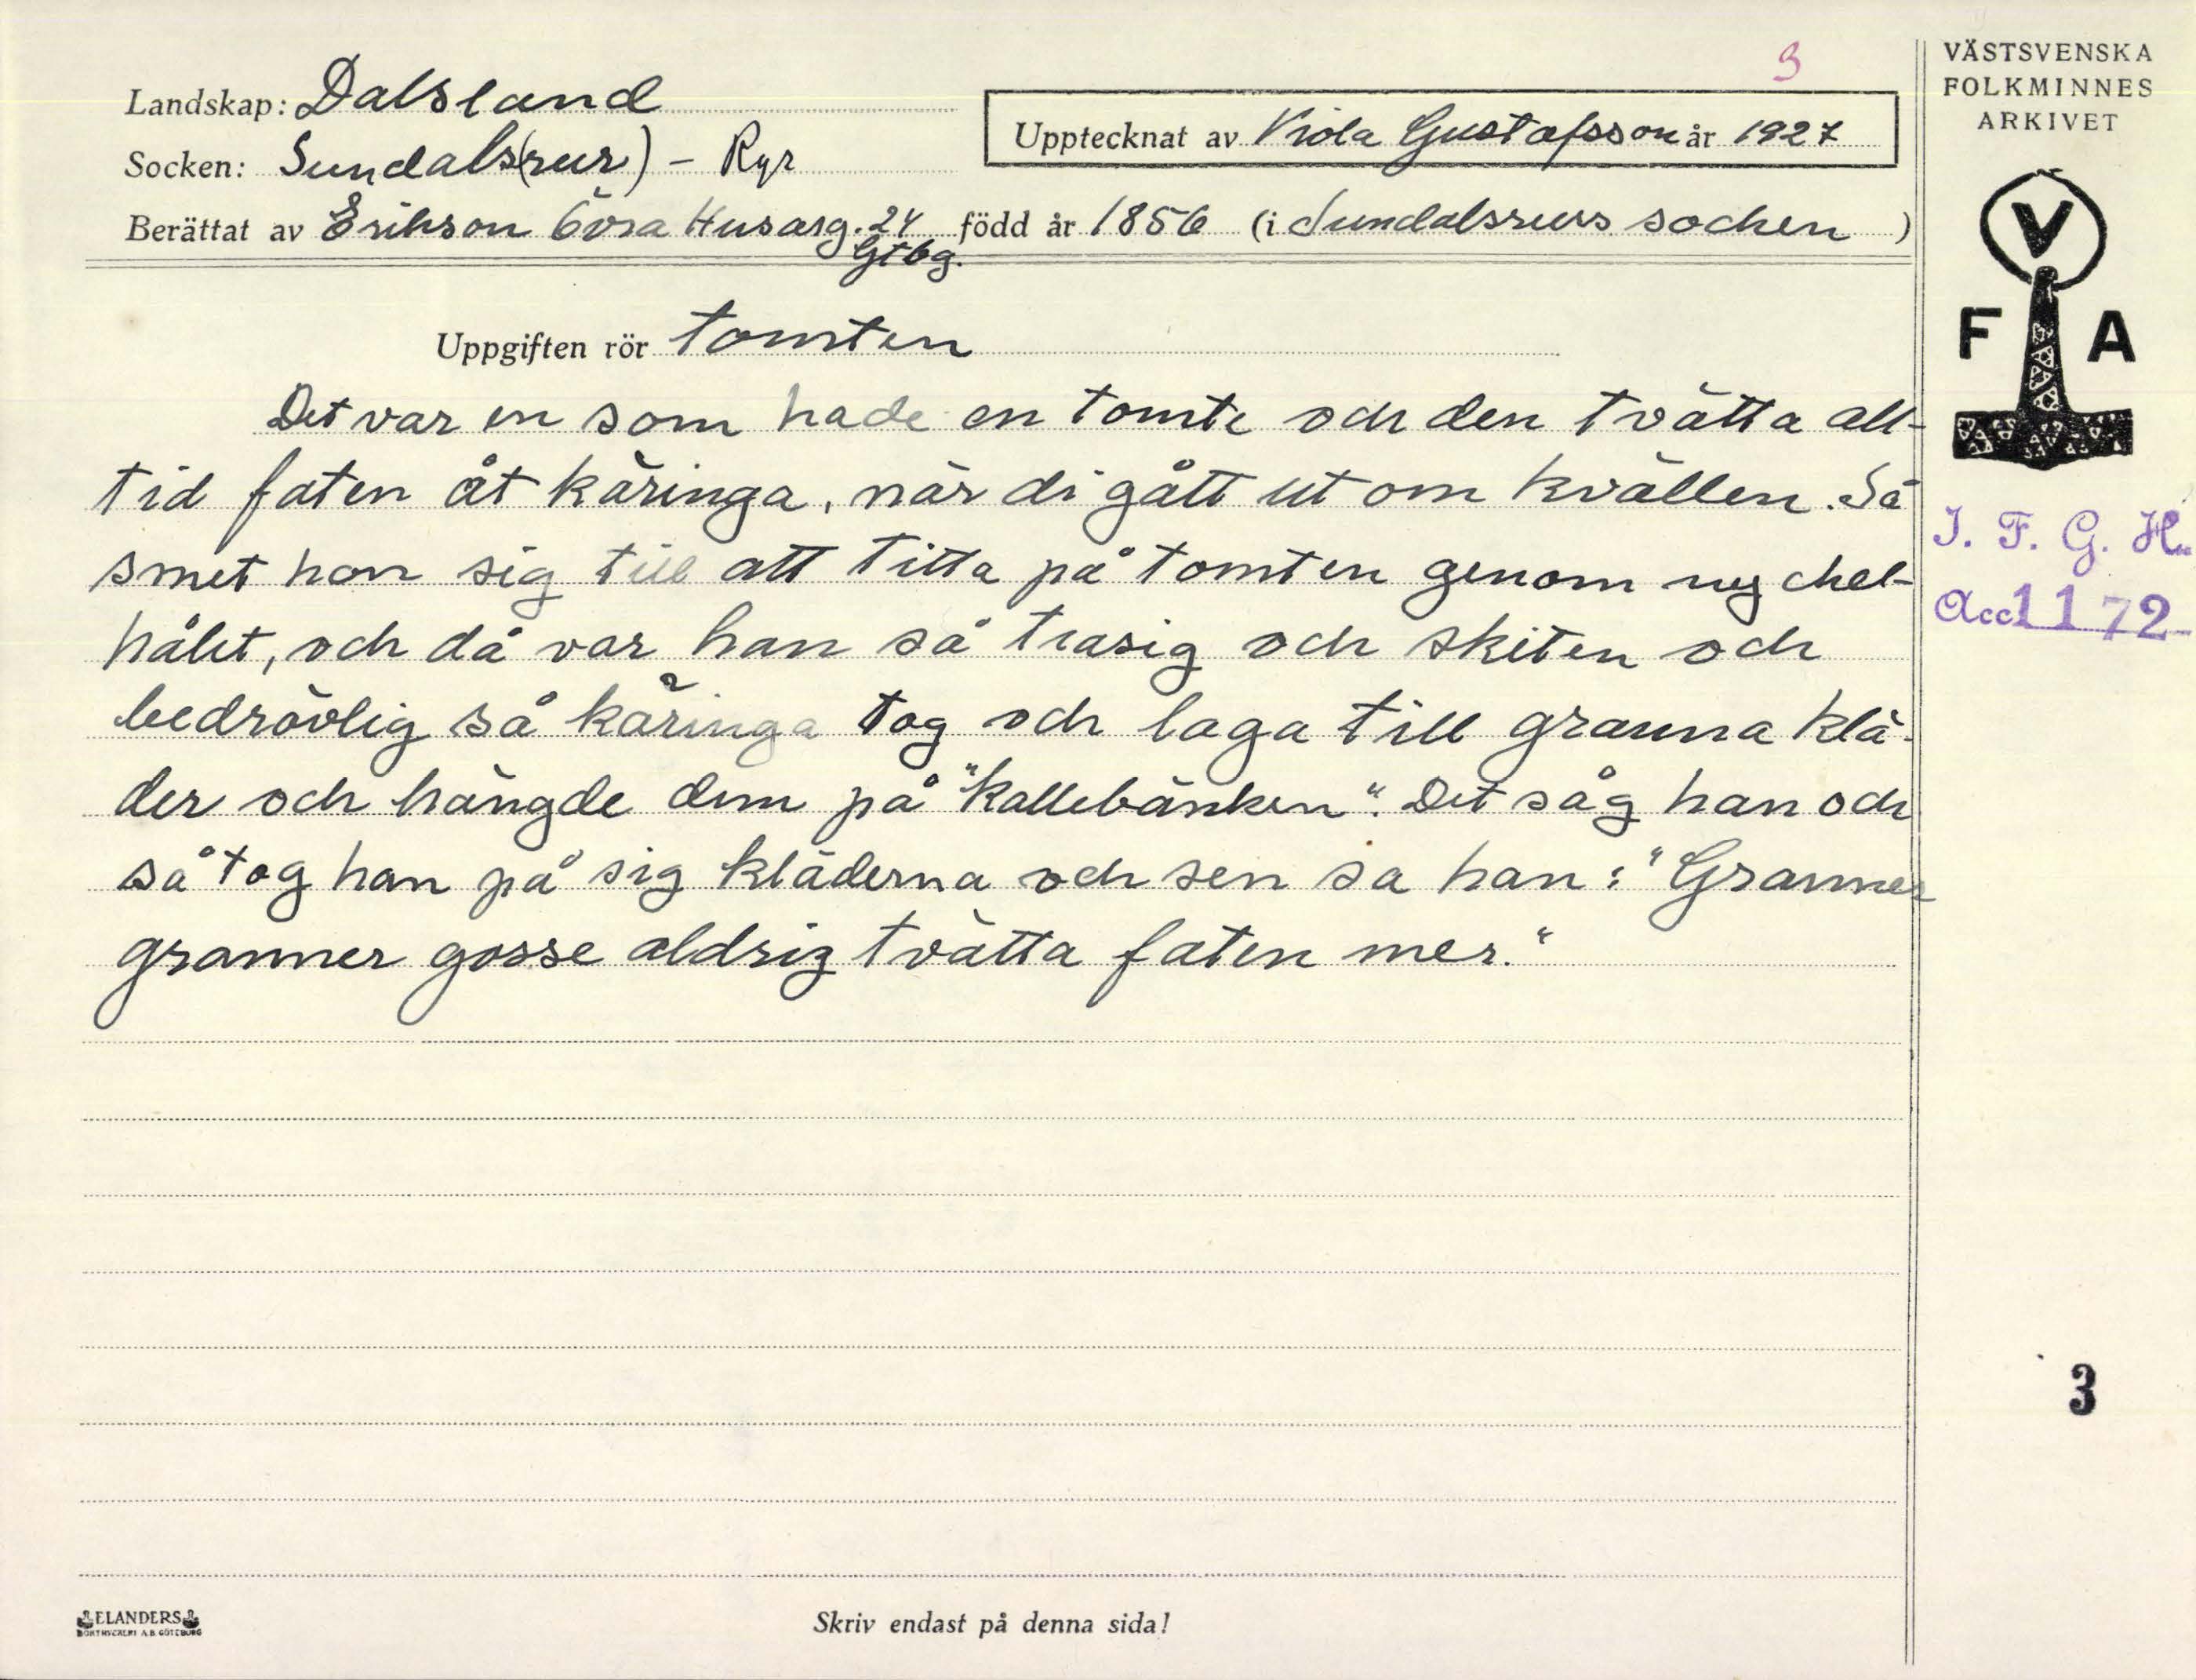 3
Landskap: Dalsland
Socken: Sundals(rur) - Ryr
Upptecknat av Viola Gustafsson år 1927
Berättat av Erikson Övra Husarg. 24 född år 1856 (i Sundalsrurs socken)
Gtbg.
Uppgiften rör tomten
Det var en som hade en tomte och den tvätta all-
tid faten åt käringa, när di gått ut om kvällen. Så
smet hon sig till att titta på tomten genom nyckel-
hålet, och då var han så trasig och skiten och
bedrövlig så käringa tog och laga till granna klä-
der och hängde dem på "kallebänken". Det såg han och
så tog han på sig kläderna och sen sa han: "Granner
granner gosse aldrig tvätta faten mer."
ELANDERS
BOKTRYCKERI A.B. GÖTEBORG
Skriv endast på denna sida!
VÄSTSVENSKA
FOLKMINNES
ARKIVET
V
F A
I. F. G. H.
Acc 1172
3